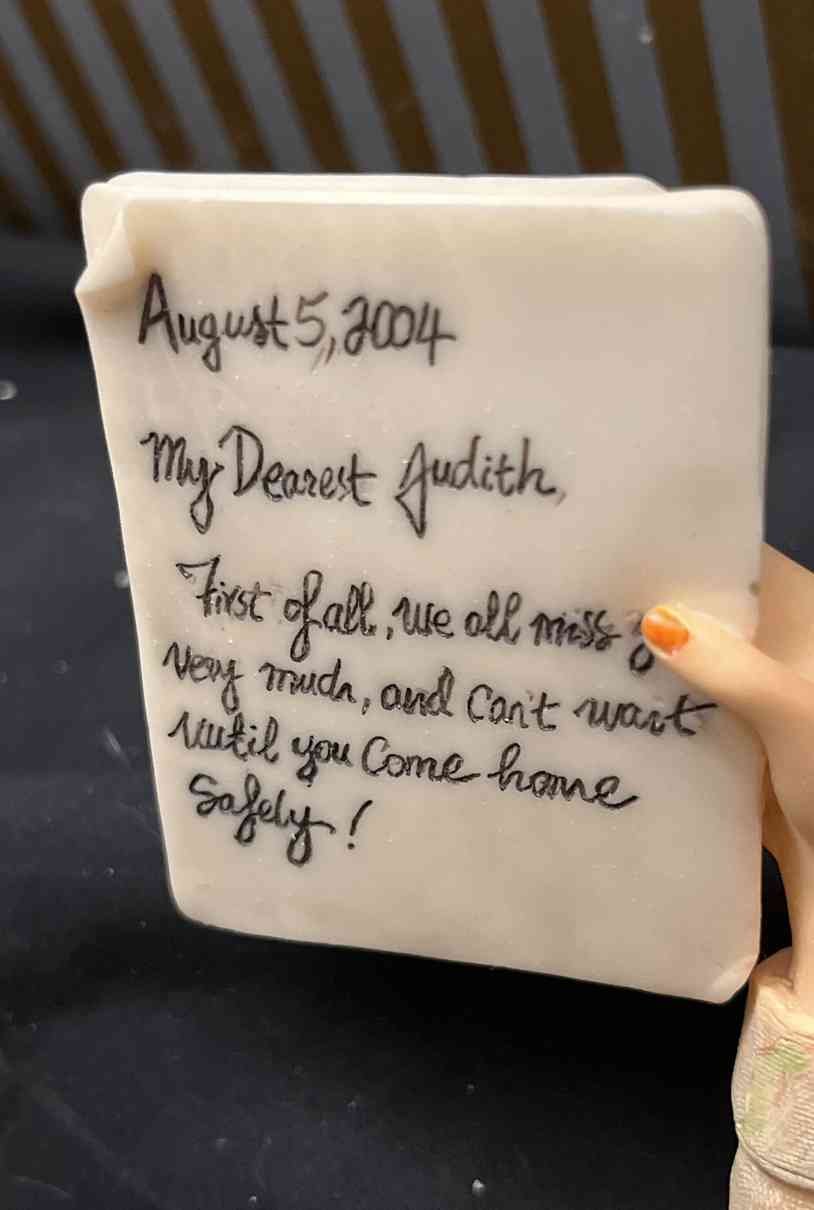 August 5, 2004
My Dearest Judith,
First of all, we all miss
very much, and can't wait
until you Come home
Safely!